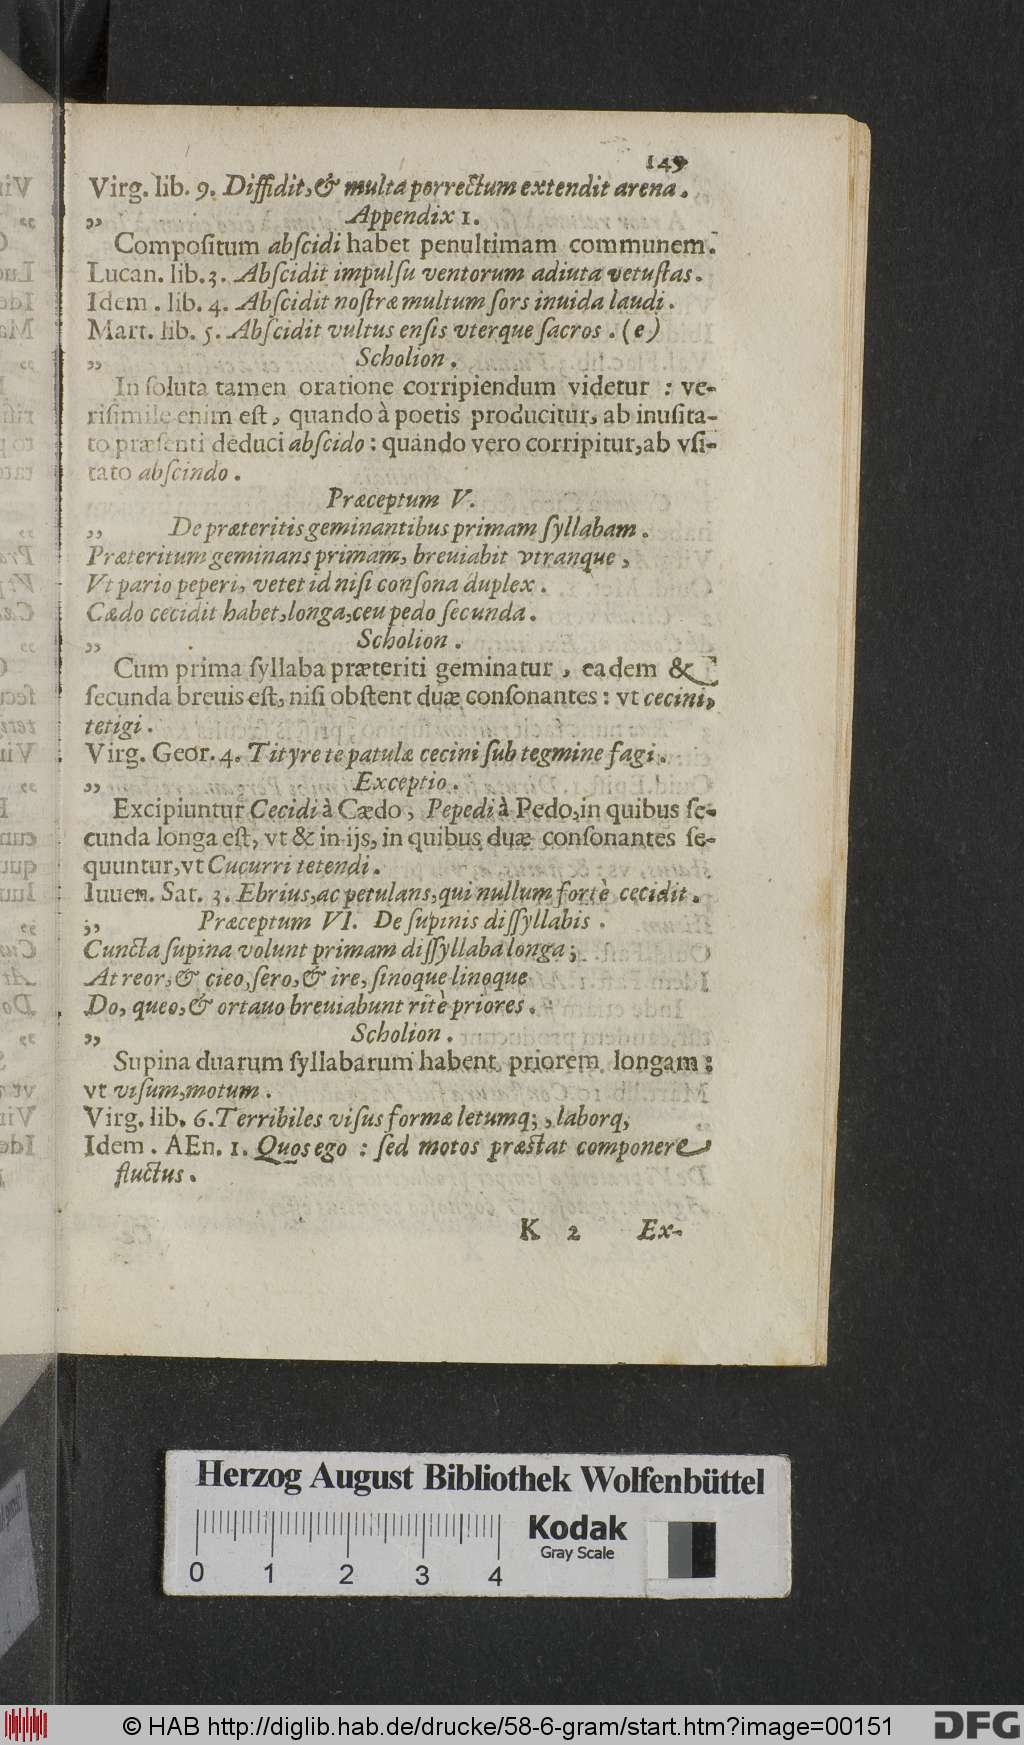 149
Virg. lib. 9. Diffidit, & multa porrectum extendit arena.
„ Appendix 1.
Compoſitum abſcidi habet penultimam communem.
Lucan. lib. 3. Abſcidit impulſu ventorum adiuta vetuſtas.
Idem. lib. 4. Abſcidit noſtræ multum ſors inuida laudi.
Mart. lib. 5. Abſcidit vultus enſis vterque ſacros. (e)
„ Scholion.
In ſoluta tamen oratione corripiendum videtur : ve-
riſimile enim eſt, quando à poetis producitur, ab inuſita-
to præſenti deduci abſcido : quando vero corripitur, ab vſi-
tato abſcindo.
Præceptum V.
„ De præteritis geminantibus primam ſyllabam.
Præteritum geminans primam, breuiabit vtranque,
Vt pario peperi, vetet id niſi conſona duplex.
Cædo cecidit habet, longa, ceu pedo ſecunda.
„ Scholion.
Cum prima ſyllaba præteriti geminatur, eadem &
ſecunda breuis eſt, niſi obſtent duæ conſonantes : vt cecini,
tetigi.
Virg. Geor. 4. Tityre te patulæ cecini ſub tegmine fagi.
„ Exceptio.
Excipiuntur Cecidi à Cædo, Pepedi à Pedo, in quibus ſe-
cunda longa eſt, vt & in ijs, in quibus duæ conſonantes ſe-
quuntur, vt Cucurri tetendi.
Iuuen. Sat. 3. Ebrius, ac petulans, qui nullum fortè cecidit.
„ Præceptum VI. De ſupinis diſſyllabis.
Cuncta ſupina volunt primam diſſyllaba longa;
At reor, & cieo, ſero, & ire, ſinoque linoque
Do, queo, & orta uo breuiabunt ritè priores.
„ Scholion.
Supina duarum ſyllabarum habent priorem longam :
vt viſum, motum.
Virg. lib. 6. Terribiles viſus formæ letumq; , laborq,
Idem. AEn. 1. Quos ego : ſed motos præſtat componere
fluctus.
K 2 Ex-
Herzog August Bibliothek Wolfenbüttel
0 1 2 3 4
Kodak
Gray Scale
© HAB http://diglib.hab.de/drucke/58-6-gram/start.htm?image=00151
DFG